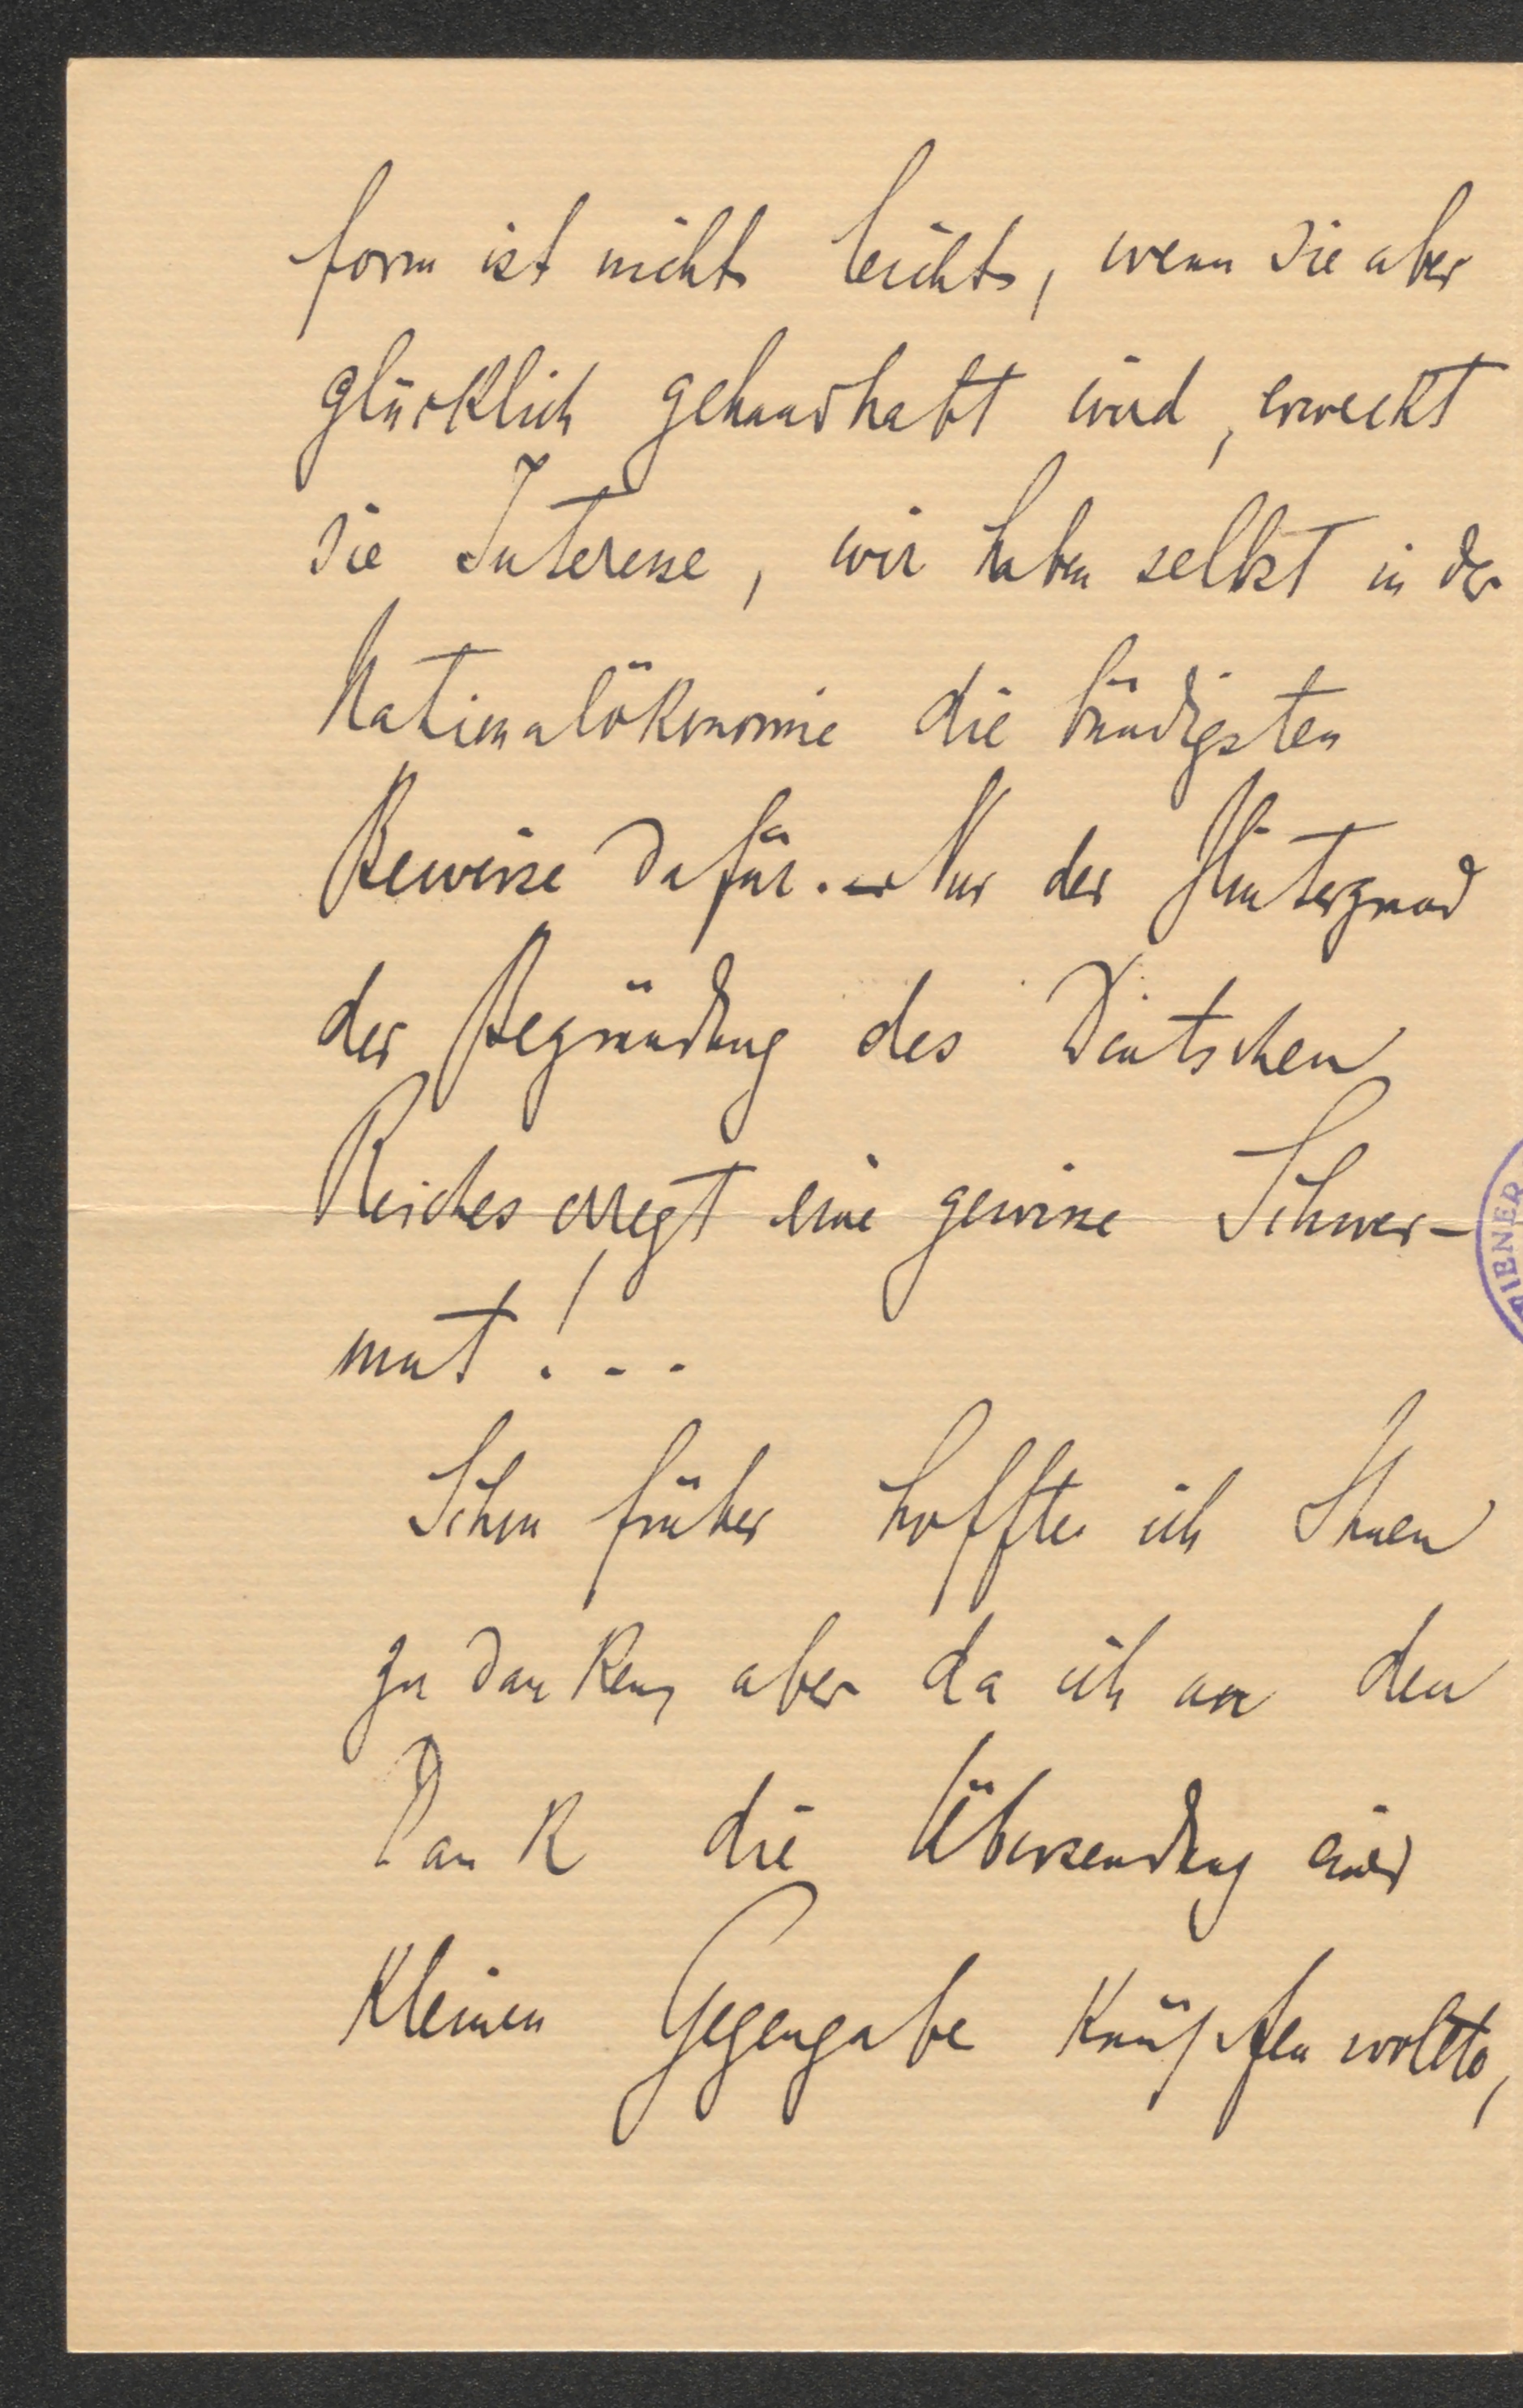 form ist nicht leicht, wenn sie aber
glücklich gehandhabt wird, erweckt
sie Interesse, wir haben selbst in der
Nationalökonomie die bündigsten
Beweise dafür. – Nur der Hintergrund
der Begründung des Deutschen
Reiches erregt eine gewisse Schwer-
mut! . .
Schon früher hoffte ich Ihnen
zu danken, aber da ich an den
Dank die Übersendung einer
kleinen Gegengabe knüpfen wollte,
IENER